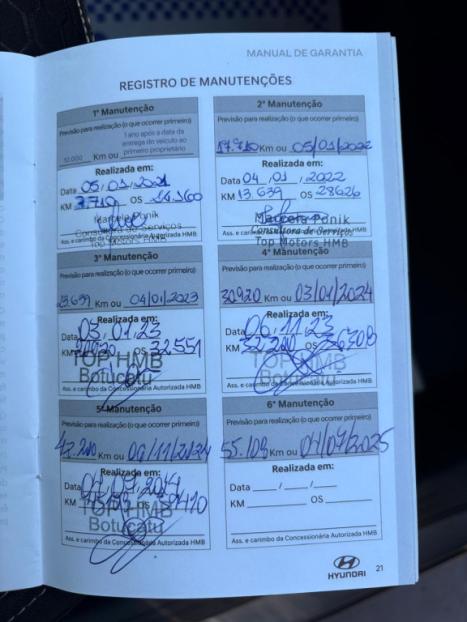 MANUAL DE GARANTIA
REGISTRO DE MANUTENÇÕES
1ª Manutenção
Previsão para realização (o que ocorrer primeiro)
10.000 Km ou 1 ano após a data da
entrega do veículo ao
primeiro proprietário
Realizada em:
Data 05, 01, 2021
KM 7.710 OS
Marcela Panik
Consultora de Serviços
Ass. e carimbo da Concessionária Autorizada HMB
Top Motors HMB
2ª Manutenção
Previsão para realização (o que ocorrer primeiro)
17.710 Km ou 05/01/2022
Realizada em:
Data 04, 01, 2022
KM 13.639 OS 28626
Marcela Panik
Consultora de Serviços
Ass. e carimbo da Concessionária Autorizada HMB
Top Motors HMB
3ª Manutenção
Previsão para realização (o que ocorrer primeiro)
23.639 Km ou 04/01/2023
Realizada em:
Data 03, 01, 23
KM OS 32.551
TOP HMB
Botucatu
Ass. e carimbo da Concessionária Autorizada HMB
4ª Manutenção
Previsão para realização (o que ocorrer primeiro)
30920 Km ou 03/01/2024
Realizada em:
Data 06, 11, 23
KM 32.200 OS
TOP HMB
Ass. e carimbo da Concessionária Autorizada HMB
5ª Manutenção
Previsão para realização (o que ocorrer primeiro)
42.200 Km ou 06/11/2024
Realizada em:
Data 04, 07, 2024
KM OS
TOP HMB
Botucatu
Ass. e carimbo da Concessionária Autorizada HMB
6ª Manutenção
Previsão para realização (o que ocorrer primeiro)
55.103 Km ou 04/07/2025
Realizada em:
Data ____ / ____ / ____
KM ________ OS ________
Ass. e carimbo da Concessionária Autorizada HMB
HYUNDAI
21